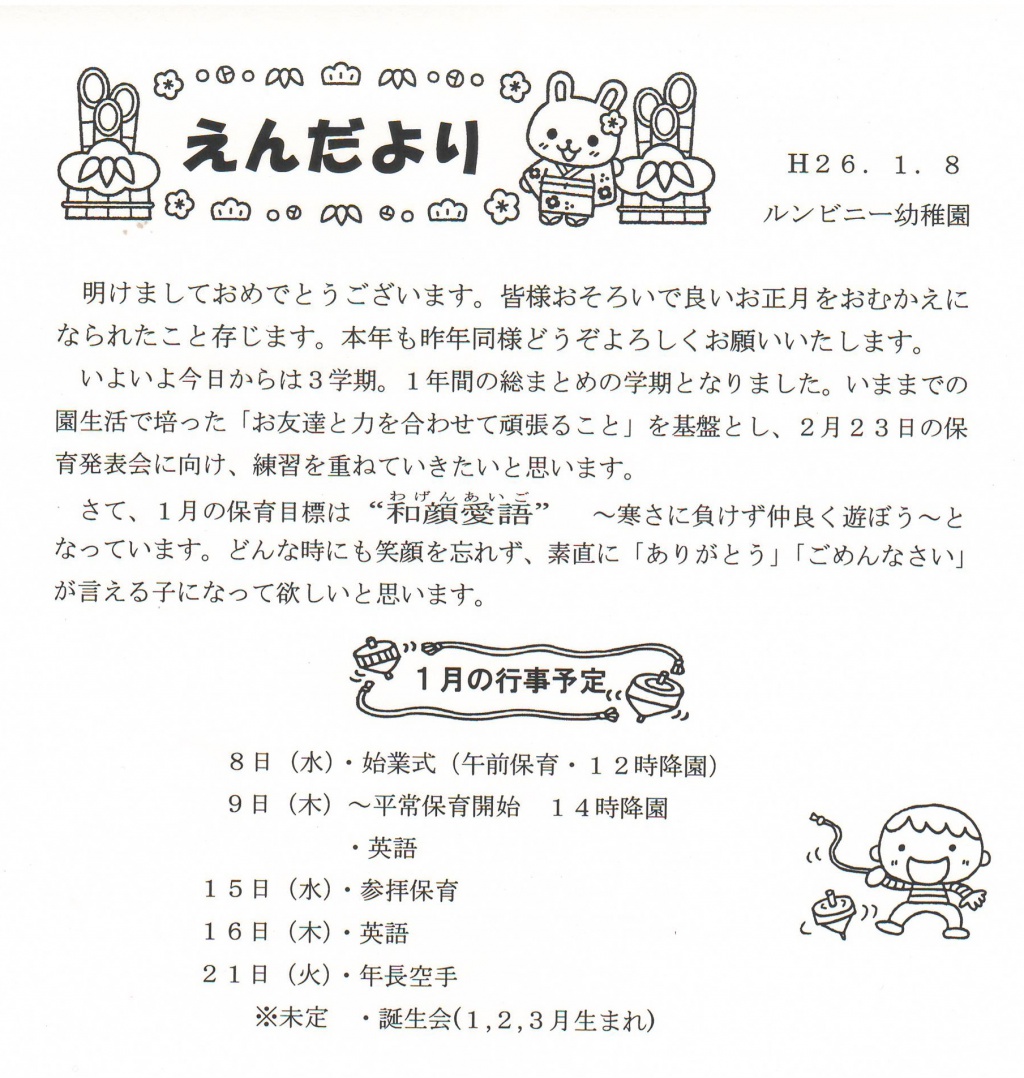 えんだより
H26.1.8
ルンビニー幼稚園
明けましておめでとうございます。皆様おそろいで良いお正月をおむかえに
なられたこと存じます。本年も昨年同様どうぞよろしくお願いいたします。
いよいよ今日からは3学期。1年間の総まとめの学期となりました。いままでの
園生活で培った「お友達と力を合わせて頑張ること」を基盤とし、2月23日の保
育発表会に向け、練習を重ねていきたいと思います。
わげんあいご
さて、1月の保育目標は“和顔愛語” ~寒さに負けず仲良く遊ぼう~と
なっています。どんな時にも笑顔を忘れず、素直に「ありがとう」「ごめんなさい」
が言える子になって欲しいと思います。
1月の行事予定
8日(水)・始業式(午前保育・12時降園)
9日(木)~平常保育開始 14時降園
・英語
15日(水)・参拝保育
16日(木)・英語
21日(火)・年長空手
※未定 ・誕生会(1,2,3月生まれ)